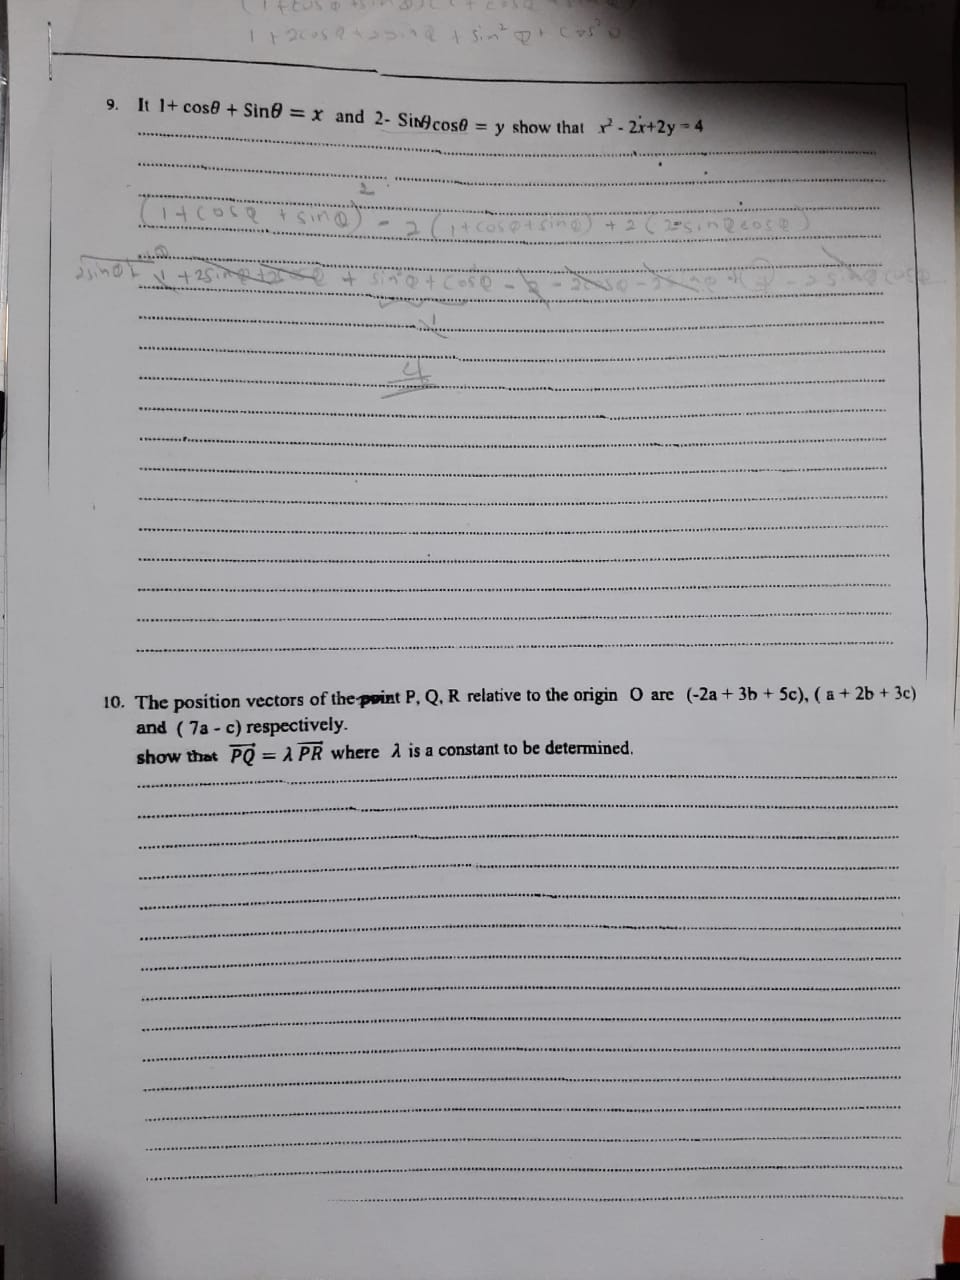 1 + 2cosθ + 2sinθ + sin²θ + cos²θ
9. It 1+ cosθ + Sinθ = x and 2- Sinθcosθ = y show that x² - 2x+2y = 4
(1+cosθ + sinθ)² - 2(1+cosθ+sinθ) + 2(2-sinθcosθ)
1 +2sinθ+2cosθ + sin²θ+cos²θ - 2 - 2cosθ - 2sinθ + 4 - 2sinθcosθ
1
4
10. The position vectors of the point P, Q, R relative to the origin O are (-2a + 3b + 5c), ( a + 2b + 3c)
and ( 7a - c) respectively.
show that PQ = λ PR where λ is a constant to be determined.